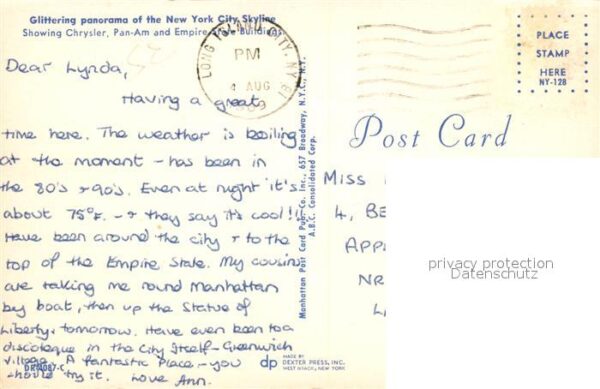 Glittering panorama of the New York City Skyline
Showing Chrysler, Pan-Am and Empire State Buildings
Dear Lynda,
Having a great
time here. The weather is boiling
at the moment - has been in
the 80's + 90's. Even at night it's
about 75°F. - + they say it's cool!!
Have been around the city + to the
top of the Empire State. My cousins
are taking me round Manhattan
by boat, then up the Statue of
Liberty, tomorrow. Have even been to a
discoteque in the City itself - Greenwich
Village. A fantastic place - you
should try it. Love Ann.
DR-14087-C
LONG ISLAND CITY, NY
PM
4 AUG
Manhattan Post Card Pub. Co. Inc., 657 Broadway, N.Y.C., N.Y.
A.B.C. Consolidated Corp.
dp
MADE BY
DEXTER PRESS, INC.
WEST NYACK, NEW YORK
PLACE
STAMP
HERE
NY-128
Post Card
MISS
4, BE
APP
NR
privacy protection
Datenschutz